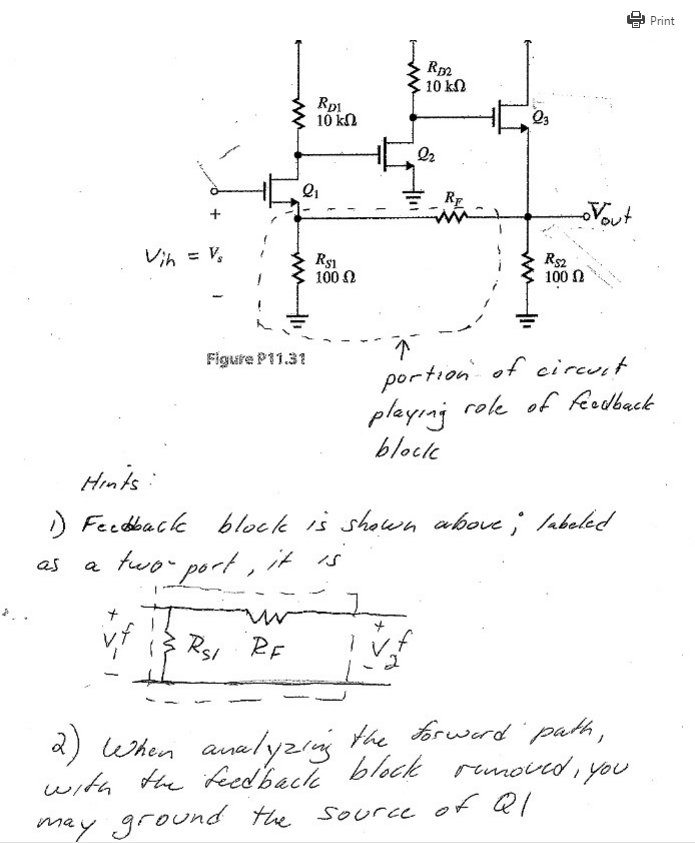 Print
R_D2
10 kΩ
R_D1
10 kΩ
Q3
Q2
Q1
R_F
Vout
+
Vin = V_s
R_S1
100 Ω
R_S2
100 Ω
−
Figure P11.31
portion of circuit
playing role of feedback
block
Hints:
1) Feedback block is shown above; labeled
as a two-port, it is
+
V1^f
−
R_S1
R_F
+
V2^f
−
2) When analyzing the forward path,
with the feedback block removed, you
may ground the source of Q1